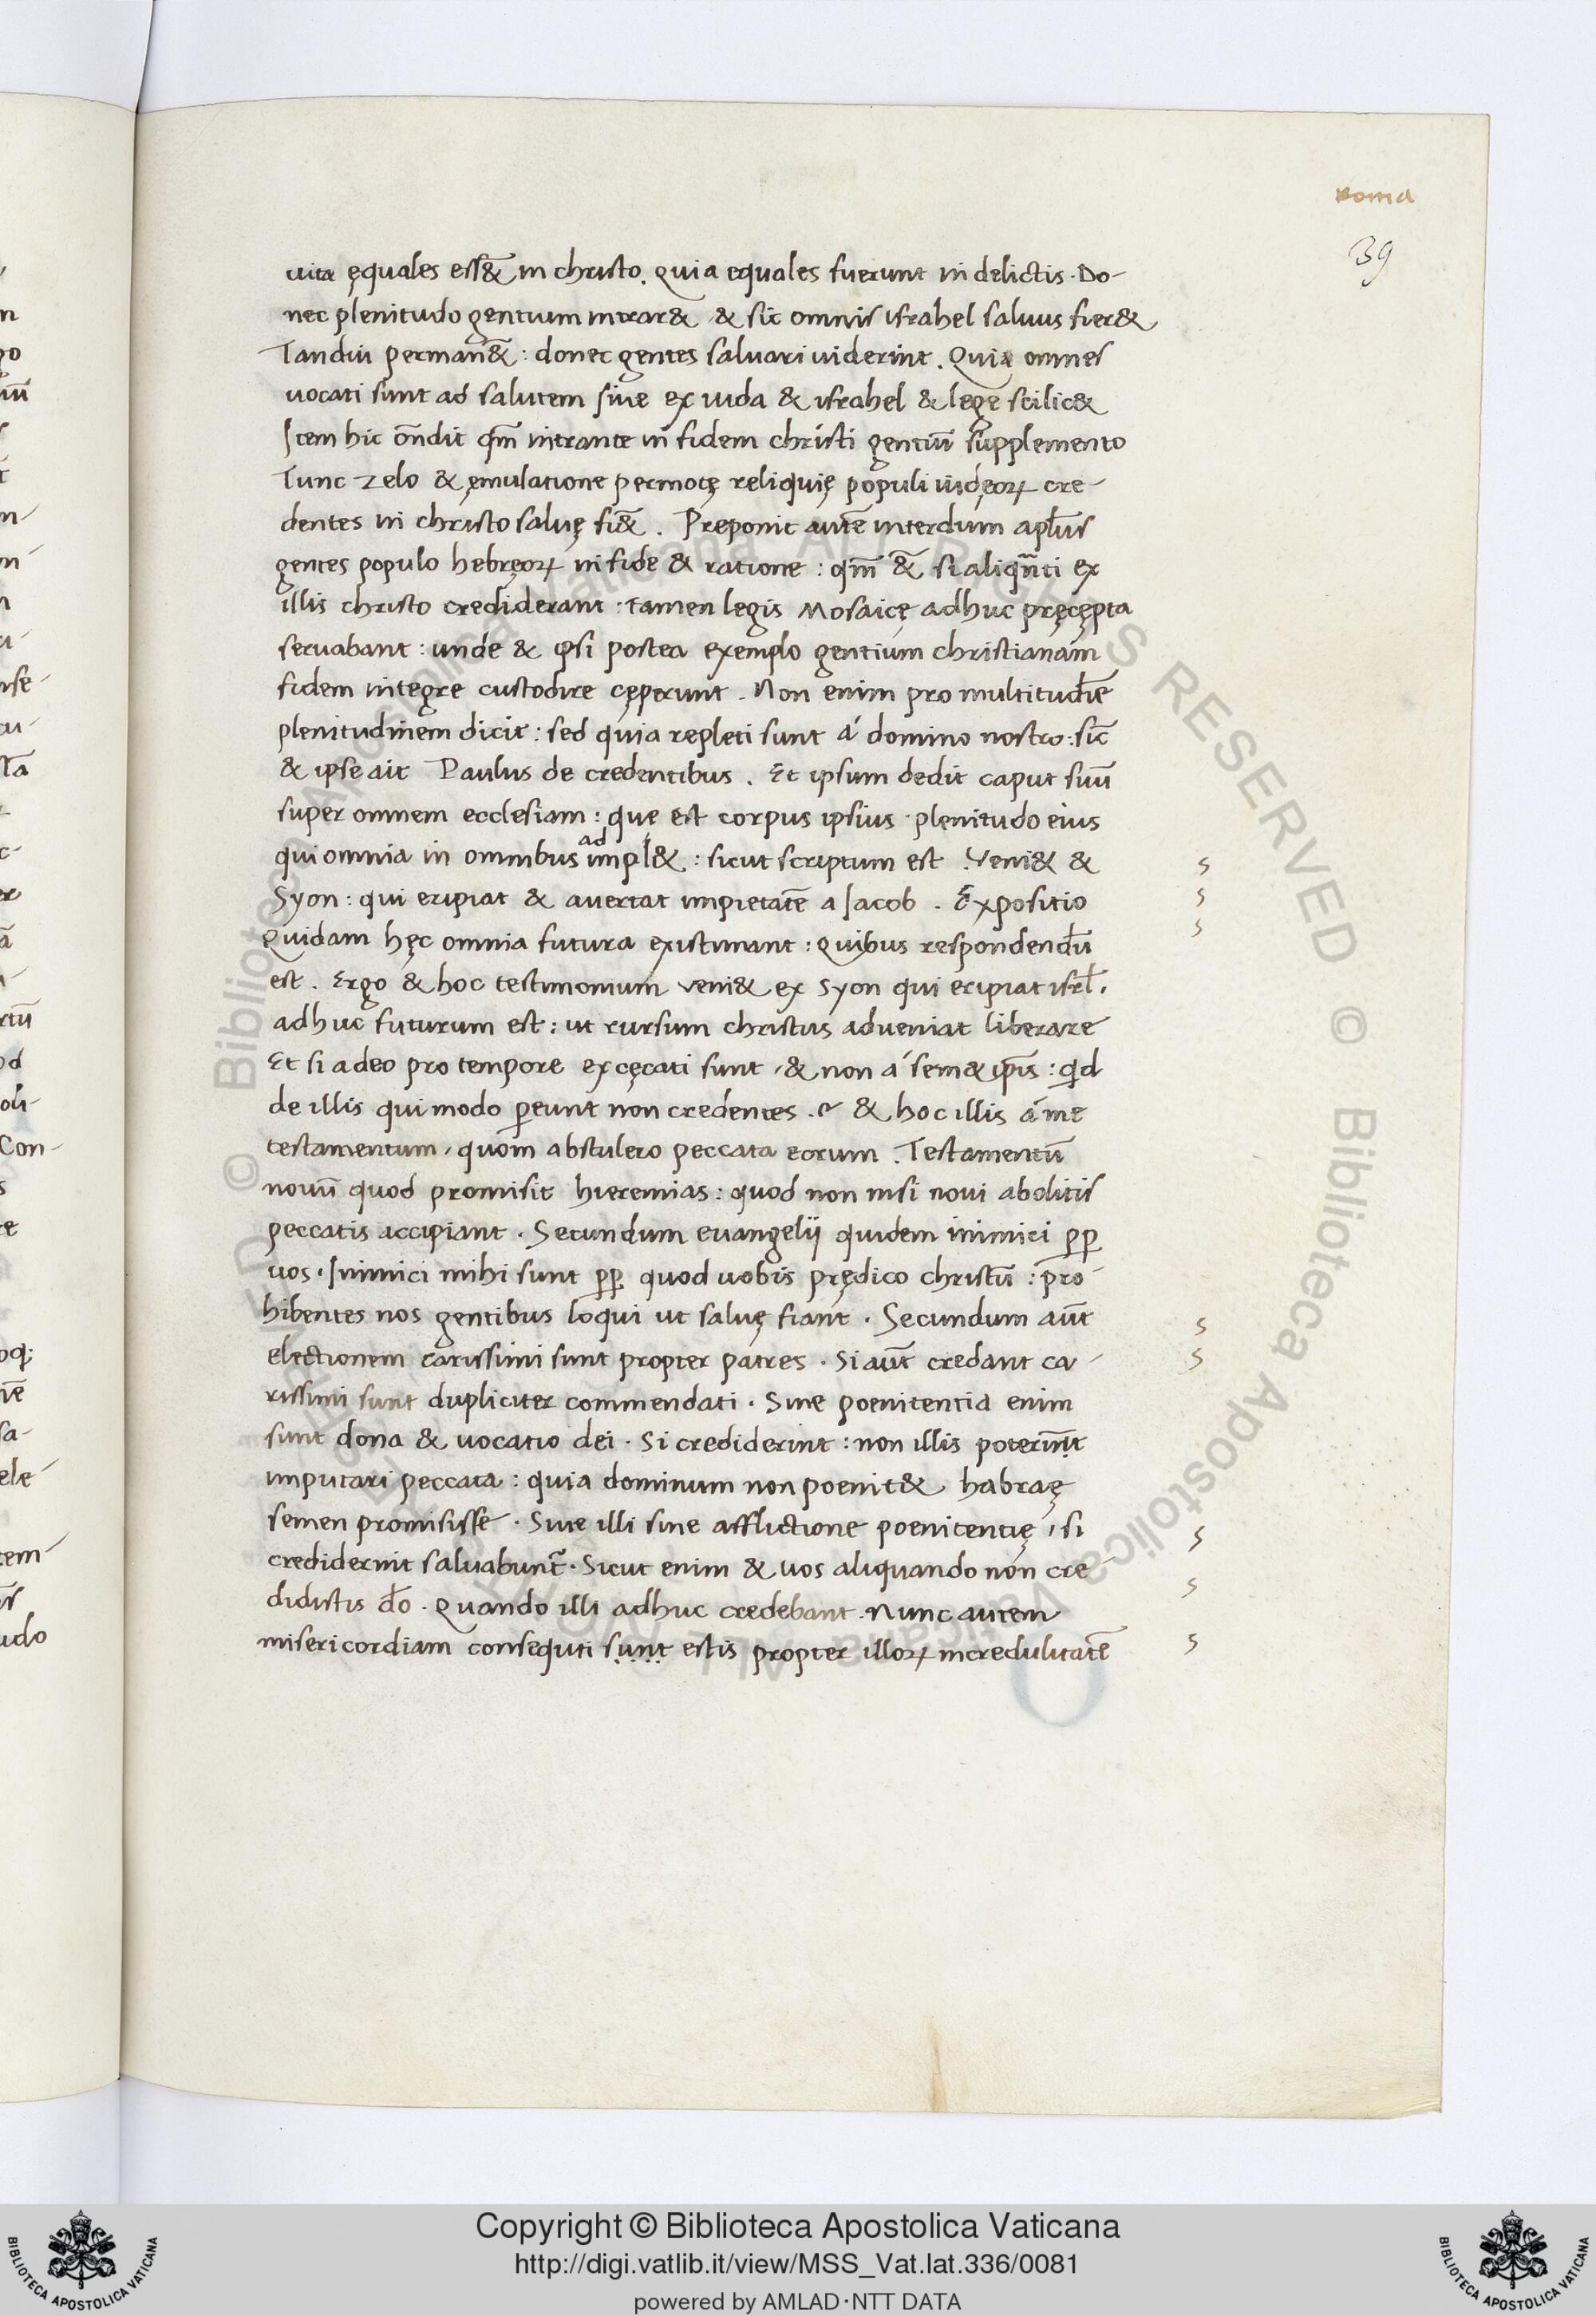 Roma
39
uita ęquales ess&̄ in christo. Quia equales fuerunt in delictis. Do-
nec plenitudo gentium intrar& & sic omnis israhel saluus fier&
Tandiu perman&̄: donec gentes saluari uiderint. Quia omnes
uocati sunt ad salutem siue ex iuda & israhel & lege scilic&
Item hic oñdit qm̄ intrante in fidem christi gentiū supplemento
Tunc zelo & ęmulatione permotę reliquię populi iudęoꝝ cre-
dentes in christo saluę fi&̄. Preponit autē interdum apl̄us
gentes populo hebręoꝝ in fide & ratione: qm̄ &̄ si aliqñti ex
illis christo crediderant: tamen legis Mosaicę adhuc pręcępta
seruabant: unde & ipsi postea exemplo gentium christianam
fidem integre custodire cęperunt. Non enim pro multitudīe
plenitudinem dicit: sed quia repleti sunt á domino nostro: sic̄
& ipse ait Paulus de credentibus. Et ipsum dedit caput suū
super omnem ecclesiam: quę est corpus ipsius plenitudo eius
qui omnia in omnibus ad impl&: sicut scriptum est. Veni& &
Syon: qui eripiat & auertat impietatē a Iacob. Expositio
Quidam hęc omnia futura existimant: quibus respondendū
est. Ergo & hoc testimonium veni& ex Syon qui eripiat isrl̄.
adhuc futurum est: ut rursum christus adueniat liberare
Et si adeo pro tempore excęcati sunt, & non á sem& ip̄is: qd̄
de illis qui modo ꝑeunt non credentes. & hoc illis á me
testamentum, quom abstulero peccata eorum. Testamentū
nouū quod promisit hieremias: quod non nisi noui abolitis
peccatis accipiant. Secundum euangelij quidem inimici ꝑꝑ
uos. Inimici mihi sunt ꝑꝑ quod uobis prędico christū: pro-
hibentes nos gentibus loqui ut saluę fiant. Secundum aūt
electionem carissimi sunt propter patres. Si aūt credant ca-
rissimi sunt dupliciter commendati. Sine poenitentia enim
sunt dona & uocatio dei. Si crediderint: non illis poterunt
imputari peccata: quia dominum non poenit& habraę
semen promisisse. Siue illi sine afflictione poenitentię, si
crediderint saluabunt̄. Sicut enim & uos aliquando non cre-
didistis d̄o. Quando illi adhuc credebant. Nunc autem
misericordiam consequti sunt estis propter illoꝝ incredulitatē
Copyright © Biblioteca Apostolica Vaticana
http://digi.vatlib.it/view/MSS_Vat.lat.336/0081
powered by AMLAD·NTT DATA